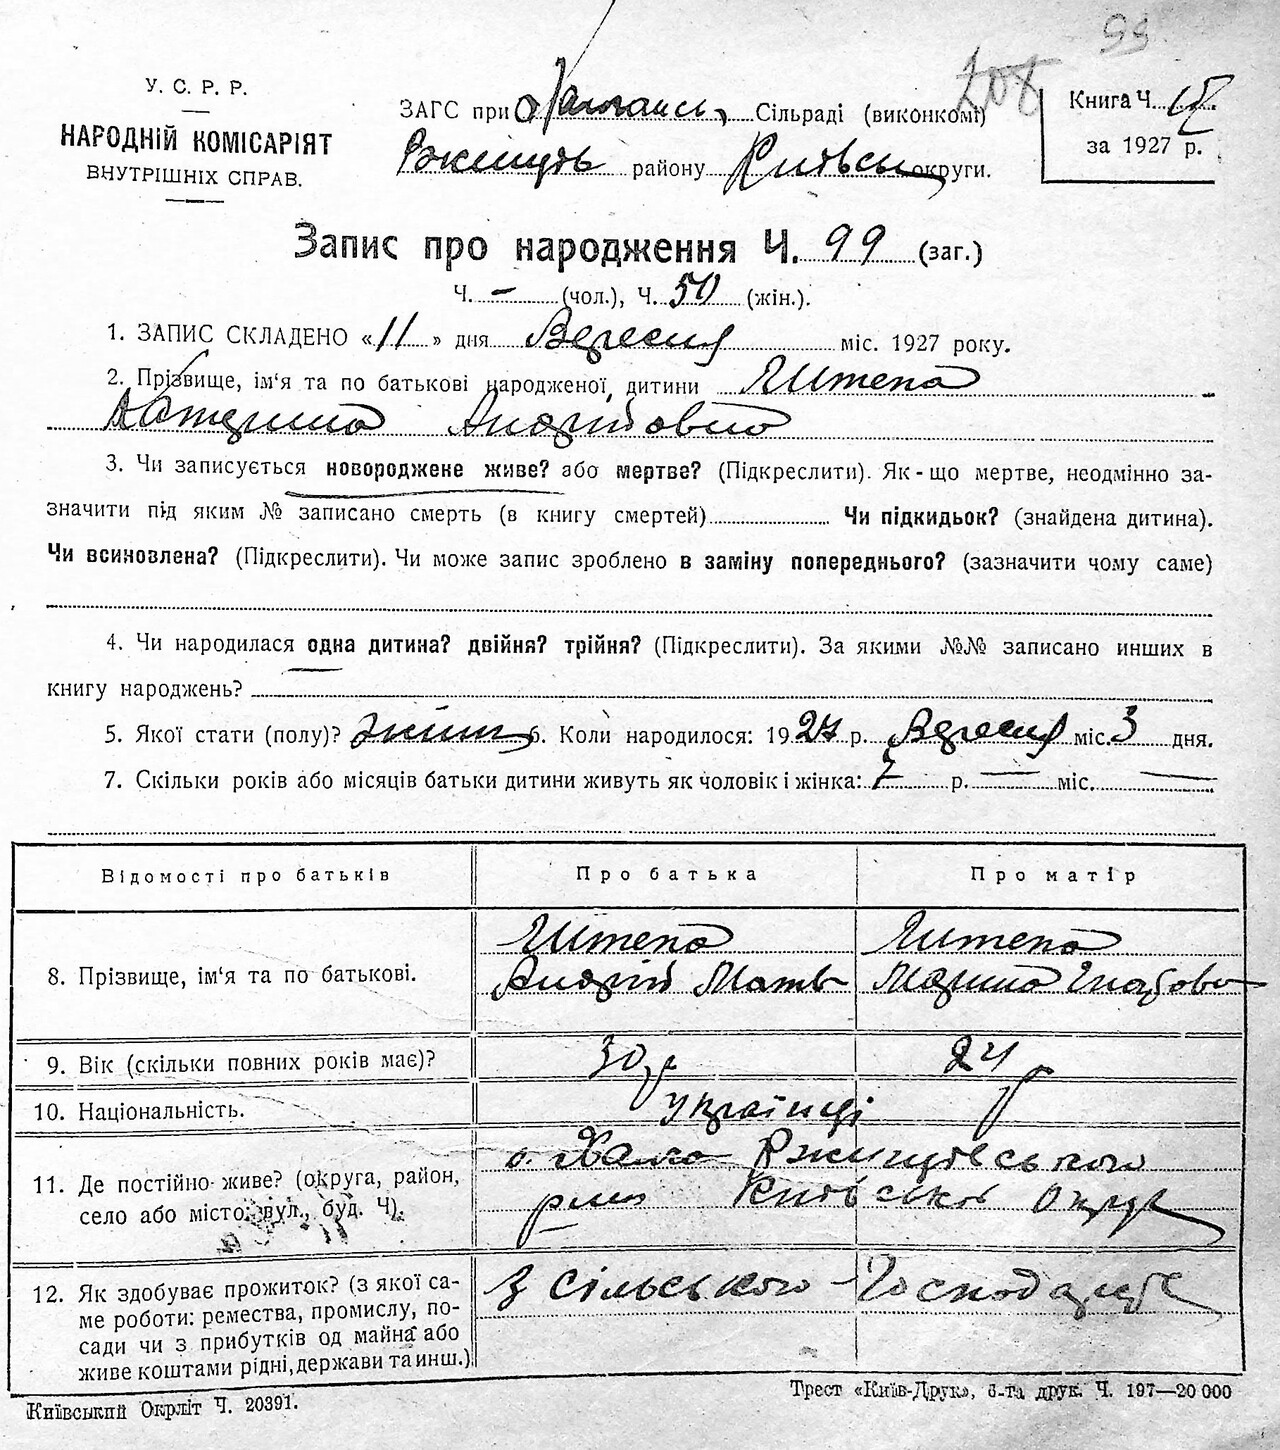 99
208
У. С. Р. Р.
НАРОДНІЙ КОМІСАРІЯТ
ВНУТРІШНІХ СПРАВ.
ЗАГС при Сільраді (виконкомі)
Ржищів району Київськ округи.
Книга Ч.
за 1927 р.
Запис про народження Ч. 99 (заг.)
Ч. - (чол.), Ч. 50 (жін.).
1. ЗАПИС СКЛАДЕНО «11» дня Вересня міс. 1927 року.
2. Прізвище, ім'я та по батькові народженої дитини Штепа
Катерина Андріївна
3. Чи записується новороджене живе? або мертве? (Підкреслити). Як-що мертве, неодмінно за-
значити під яким № записано смерть (в книгу смертей) Чи підкидьок? (знайдена дитина).
Чи всиновлена? (Підкреслити). Чи може запис зроблено в заміну попереднього? (зазначити чому саме)
4. Чи народилася одна дитина? двійня? трійня? (Підкреслити). За якими №№ записано инших в
книгу народжень?
5. Якої стати (полу)? жіноч 6. Коли народилося: 1927 р. Вересня міс. 3 дня.
7. Скільки років або місяців батьки дитини живуть як чоловік і жінка: 7 р. — міс. —
Відомості про батьків Про батька Про матір
8. Прізвище, ім'я та по батькові. Штепа Андрій Матв Штепа Марина Гнатовна
9. Вік (скільки повних років має)? 30 р 24 р
10. Національність. українці
11. Де постійно живе? (округа, район, с. Ржищівського
село або місто, вул., буд. Ч). рну Київської Округи
12. Як здобуває прожиток? (з якої са- З сільського-господарства
ме роботи: ремества, промислу, по-
сади чи з прибутків од майна або
живе коштами рідні, держави та инш.)
Київський Окрліт Ч. 20391.
Трест «Київ-Друк», 6-та друк. Ч. 197—20 000